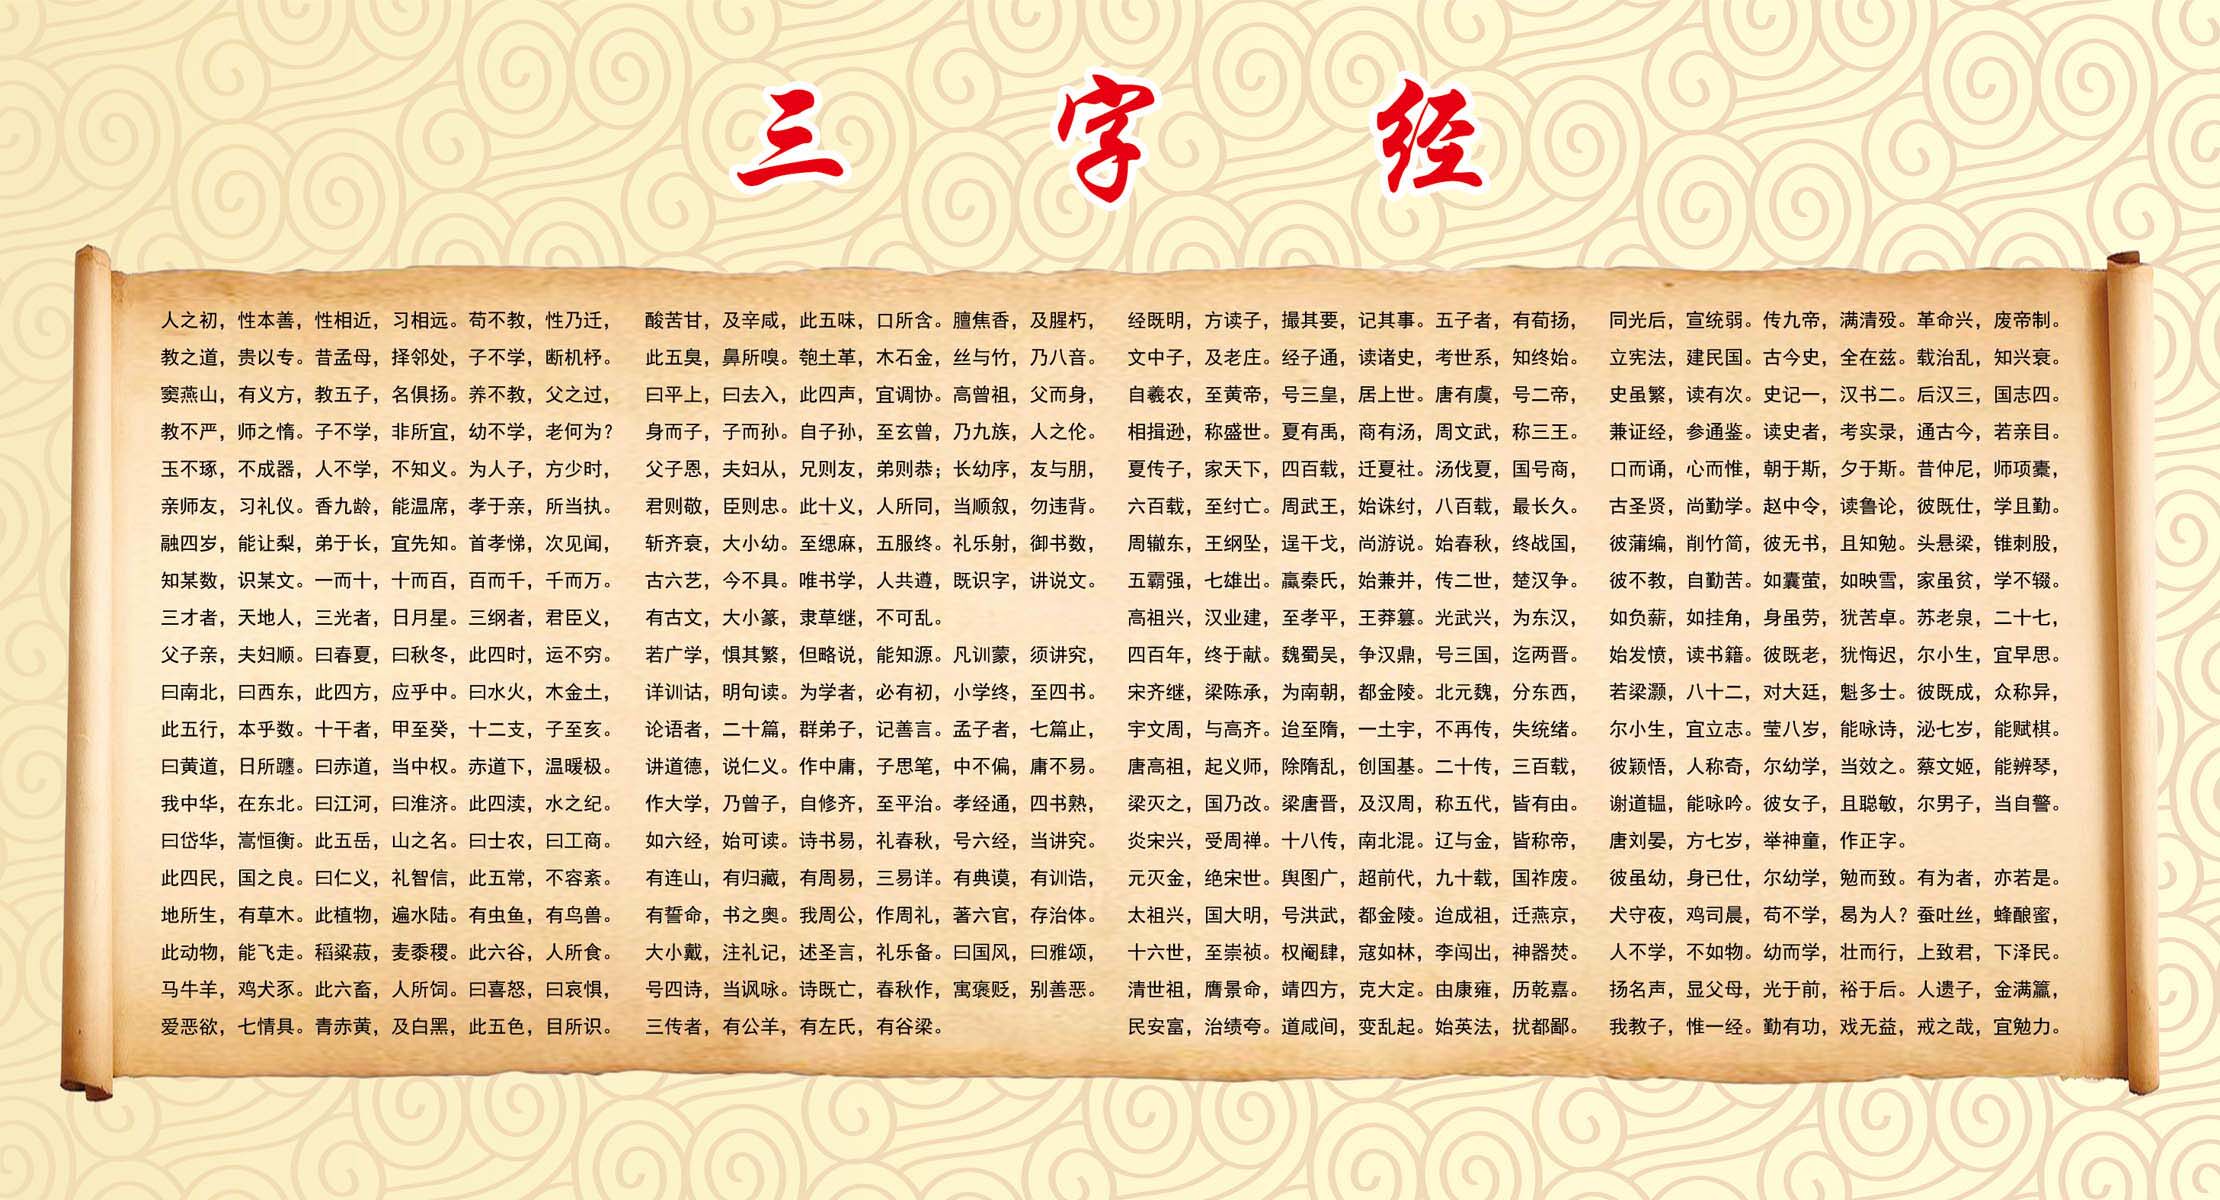 三字经
人之初，性本善，性相近，习相远。苟不教，性乃迁，
教之道，贵以专。昔孟母，择邻处，子不学，断机杼。
窦燕山，有义方，教五子，名俱扬。养不教，父之过，
教不严，师之惰。子不学，非所宜，幼不学，老何为？
玉不琢，不成器，人不学，不知义。为人子，方少时，
亲师友，习礼仪。香九龄，能温席，孝于亲，所当执。
融四岁，能让梨，弟于长，宜先知。首孝悌，次见闻，
知某数，识某文。一而十，十而百，百而千，千而万。
三才者，天地人，三光者，日月星。三纲者，君臣义，
父子亲，夫妇顺。曰春夏，曰秋冬，此四时，运不穷。
曰南北，曰西东，此四方，应乎中。曰水火，木金土，
此五行，本乎数。十干者，甲至癸，十二支，子至亥。
曰黄道，日所躔。曰赤道，当中权。赤道下，温暖极。
我中华，在东北。曰江河，曰淮济。此四渎，水之纪。
曰岱华，嵩恒衡。此五岳，山之名。曰士农，曰工商。
此四民，国之良。曰仁义，礼智信，此五常，不容紊。
地所生，有草木。此植物，遍水陆。有虫鱼，有鸟兽。
此动物，能飞走。稻粱菽，麦黍稷。此六谷，人所食。
马牛羊，鸡犬豕。此六畜，人所饲。曰喜怒，曰哀惧，
爱恶欲，七情具。青赤黄，及白黑，此五色，目所识。
酸苦甘，及辛咸，此五味，口所含。膻焦香，及腥朽，
此五臭，鼻所嗅。匏土革，木石金，丝与竹，乃八音。
曰平上，曰去入，此四声，宜调协。高曾祖，父而身，
身而子，子而孙。自子孙，至玄曾，乃九族，人之伦。
父子恩，夫妇从，兄则友，弟则恭；长幼序，友与朋，
君则敬，臣则忠。此十义，人所同，当顺叙，勿违背。
斩齐衰，大小幼。至缌麻，五服终。礼乐射，御书数，
古六艺，今不具。唯书学，人共遵，既识字，讲说文。
有古文，大小篆，隶草继，不可乱。
若广学，惧其繁，但略说，能知源。凡训蒙，须讲究，
详训诂，明句读。为学者，必有初，小学终，至四书。
论语者，二十篇，群弟子，记善言。孟子者，七篇止，
讲道德，说仁义。作中庸，子思笔，中不偏，庸不易。
作大学，乃曾子，自修齐，至平治。孝经通，四书熟，
如六经，始可读。诗书易，礼春秋，号六经，当讲究。
有连山，有归藏，有周易，三易详。有典谟，有训诰，
有誓命，书之奥。我周公，作周礼，著六官，存治体。
大小戴，注礼记，述圣言，礼乐备。曰国风，曰雅颂，
号四诗，当讽咏。诗既亡，春秋作，寓褒贬，别善恶。
三传者，有公羊，有左氏，有谷梁。
经既明，方读子，撮其要，记其事。五子者，有荀扬，
文中子，及老庄。经子通，读诸史，考世系，知终始。
自羲农，至黄帝，号三皇，居上世。唐有虞，号二帝，
相揖逊，称盛世。夏有禹，商有汤，周文武，称三王。
夏传子，家天下，四百载，迁夏社。汤伐夏，国号商，
六百载，至纣亡。周武王，始诛纣，八百载，最长久。
周辙东，王纲坠，逞干戈，尚游说。始春秋，终战国，
五霸强，七雄出。嬴秦氏，始兼并，传二世，楚汉争。
高祖兴，汉业建，至孝平，王莽篡。光武兴，为东汉，
四百年，终于献。魏蜀吴，争汉鼎，号三国，迄两晋。
宋齐继，梁陈承，为南朝，都金陵。北元魏，分东西，
宇文周，与高齐。迨至隋，一土宇，不再传，失统绪。
唐高祖，起义师，除隋乱，创国基。二十传，三百载，
梁灭之，国乃改。梁唐晋，及汉周，称五代，皆有由。
炎宋兴，受周禅。十八传，南北混。辽与金，皆称帝，
元灭金，绝宋世。舆图广，超前代，九十载，国祚废。
太祖兴，国大明，号洪武，都金陵。迨成祖，迁燕京，
十六世，至崇祯。权阉肆，寇如林，李闯出，神器焚。
清世祖，膺景命，靖四方，克大定。由康雍，历乾嘉。
民安富，治绩夸。道咸间，变乱起。始英法，扰都鄙。
同光后，宣统弱。传九帝，满清殁。革命兴，废帝制。
立宪法，建民国。古今史，全在兹。载治乱，知兴衰。
史虽繁，读有次。史记一，汉书二。后汉三，国志四。
兼证经，参通鉴。读史者，考实录，通古今，若亲目。
口而诵，心而惟，朝于斯，夕于斯。昔仲尼，师项橐，
古圣贤，尚勤学。赵中令，读鲁论，彼既仕，学且勤。
彼蒲编，削竹简，彼无书，且知勉。头悬梁，锥刺股，
彼不教，自勤苦。如囊萤，如映雪，家虽贫，学不辍。
如负薪，如挂角，身虽劳，犹苦卓。苏老泉，二十七，
始发愤，读书籍。彼既老，犹悔迟，尔小生，宜早思。
若梁灏，八十二，对大廷，魁多士。彼既成，众称异，
尔小生，宜立志。莹八岁，能咏诗，泌七岁，能赋棋。
彼颖悟，人称奇，尔幼学，当效之。蔡文姬，能辨琴，
谢道韫，能咏吟。彼女子，且聪敏，尔男子，当自警。
唐刘晏，方七岁，举神童，作正字。
彼虽幼，身已仕，尔幼学，勉而致。有为者，亦若是。
犬守夜，鸡司晨，苟不学，曷为人？蚕吐丝，蜂酿蜜，
人不学，不如物。幼而学，壮而行，上致君，下泽民。
扬名声，显父母，光于前，裕于后。人遗子，金满籝，
我教子，惟一经。勤有功，戏无益，戒之哉，宜勉力。